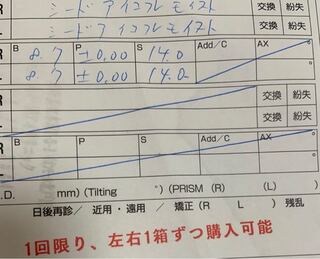 シード アイコフレ モイスト 交換 紛失
シード アイコフレ モイスト 交換 紛失
R B 8.7 P ±0.00 S 14.0 Add/C AX °
8.7 ±0.00 14.0 °
R 交換 紛失
交換 紛失
R B P S Add/C AX °
°
.D. mm) (Tilting °) (PRISM (R) (L) )
日後再診 / 近用・遠用 / 矯正 (R L ) 残乱
1回限り、左右1箱ずつ購入可能